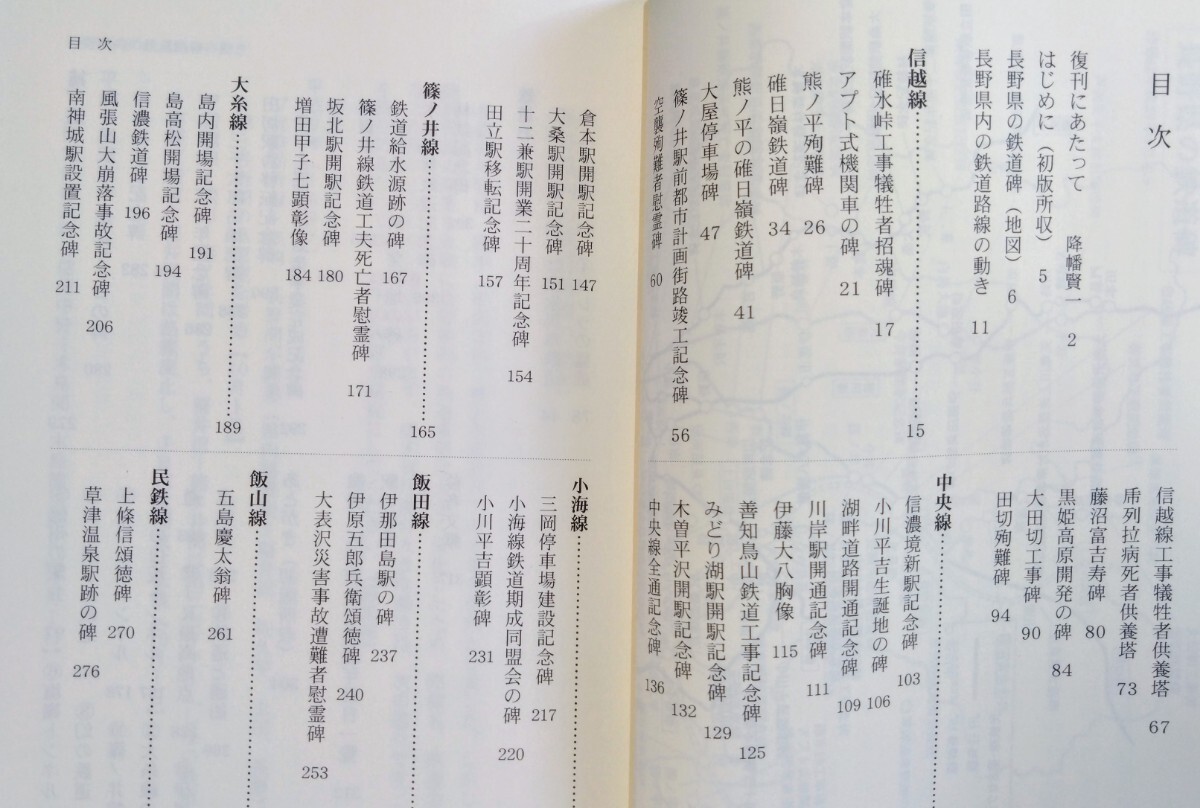 目次
復刊にあたって　降幡賢一　2
はじめに（初版所収）　5
長野県の鉄道碑（地図）　6
長野県内の鉄道路線の動き　11
信越線……………………15
碓氷峠工事犠牲者招魂碑　17
アプト式機関車の碑　21
熊ノ平殉難碑　26
碓日嶺鉄道碑　34
熊ノ平の碓日嶺鉄道碑　41
大屋停車場碑　47
篠ノ井駅前都市計画街路竣工記念碑　56
空襲殉難者慰霊碑　60
信越線工事犠牲者供養塔　67
乕列拉病死者供養塔　73
藤沼富吉寿碑　80
黒姫高原開発の碑　84
大田切工事碑　90
田切殉難碑　94
中央線……………………
信濃境新駅記念碑　103
小川平吉生誕地の碑　106
湖畔道路開通記念碑　109
川岸駅開通記念碑　111
伊藤大八胸像　115
善知鳥山鉄道工事記念碑　125
みどり湖駅開駅記念碑　129
木曽平沢開駅記念碑　132
中央線全通記念碑　136
目次
倉本駅開駅記念碑　147
大桑駅開駅記念碑　151
十二兼駅開業二十周年記念碑　154
田立駅移転記念碑　157
篠ノ井線……………………165
鉄道給水源跡の碑　167
篠ノ井線鉄道工夫死亡者慰霊碑　171
坂北駅開駅記念碑　180
増田甲子七顕彰像　184
大糸線……………………189
島内開場記念碑　191
島高松開場記念碑　194
信濃鉄道碑　196
風張山大崩落事故記念碑　206
南神城駅設置記念碑　211
小海線……………………
三岡停車場建設記念碑　217
小海線鉄道期成同盟会の碑　220
小川平吉顕彰碑　231
飯田線……………………
伊那田島駅の碑　237
伊原五郎兵衛頌徳碑　240
大表沢災害事故遭難者慰霊碑　253
飯山線……………………
五島慶太翁碑　261
民鉄線……………………
上條信頌徳碑　270
草津温泉駅跡の碑　276